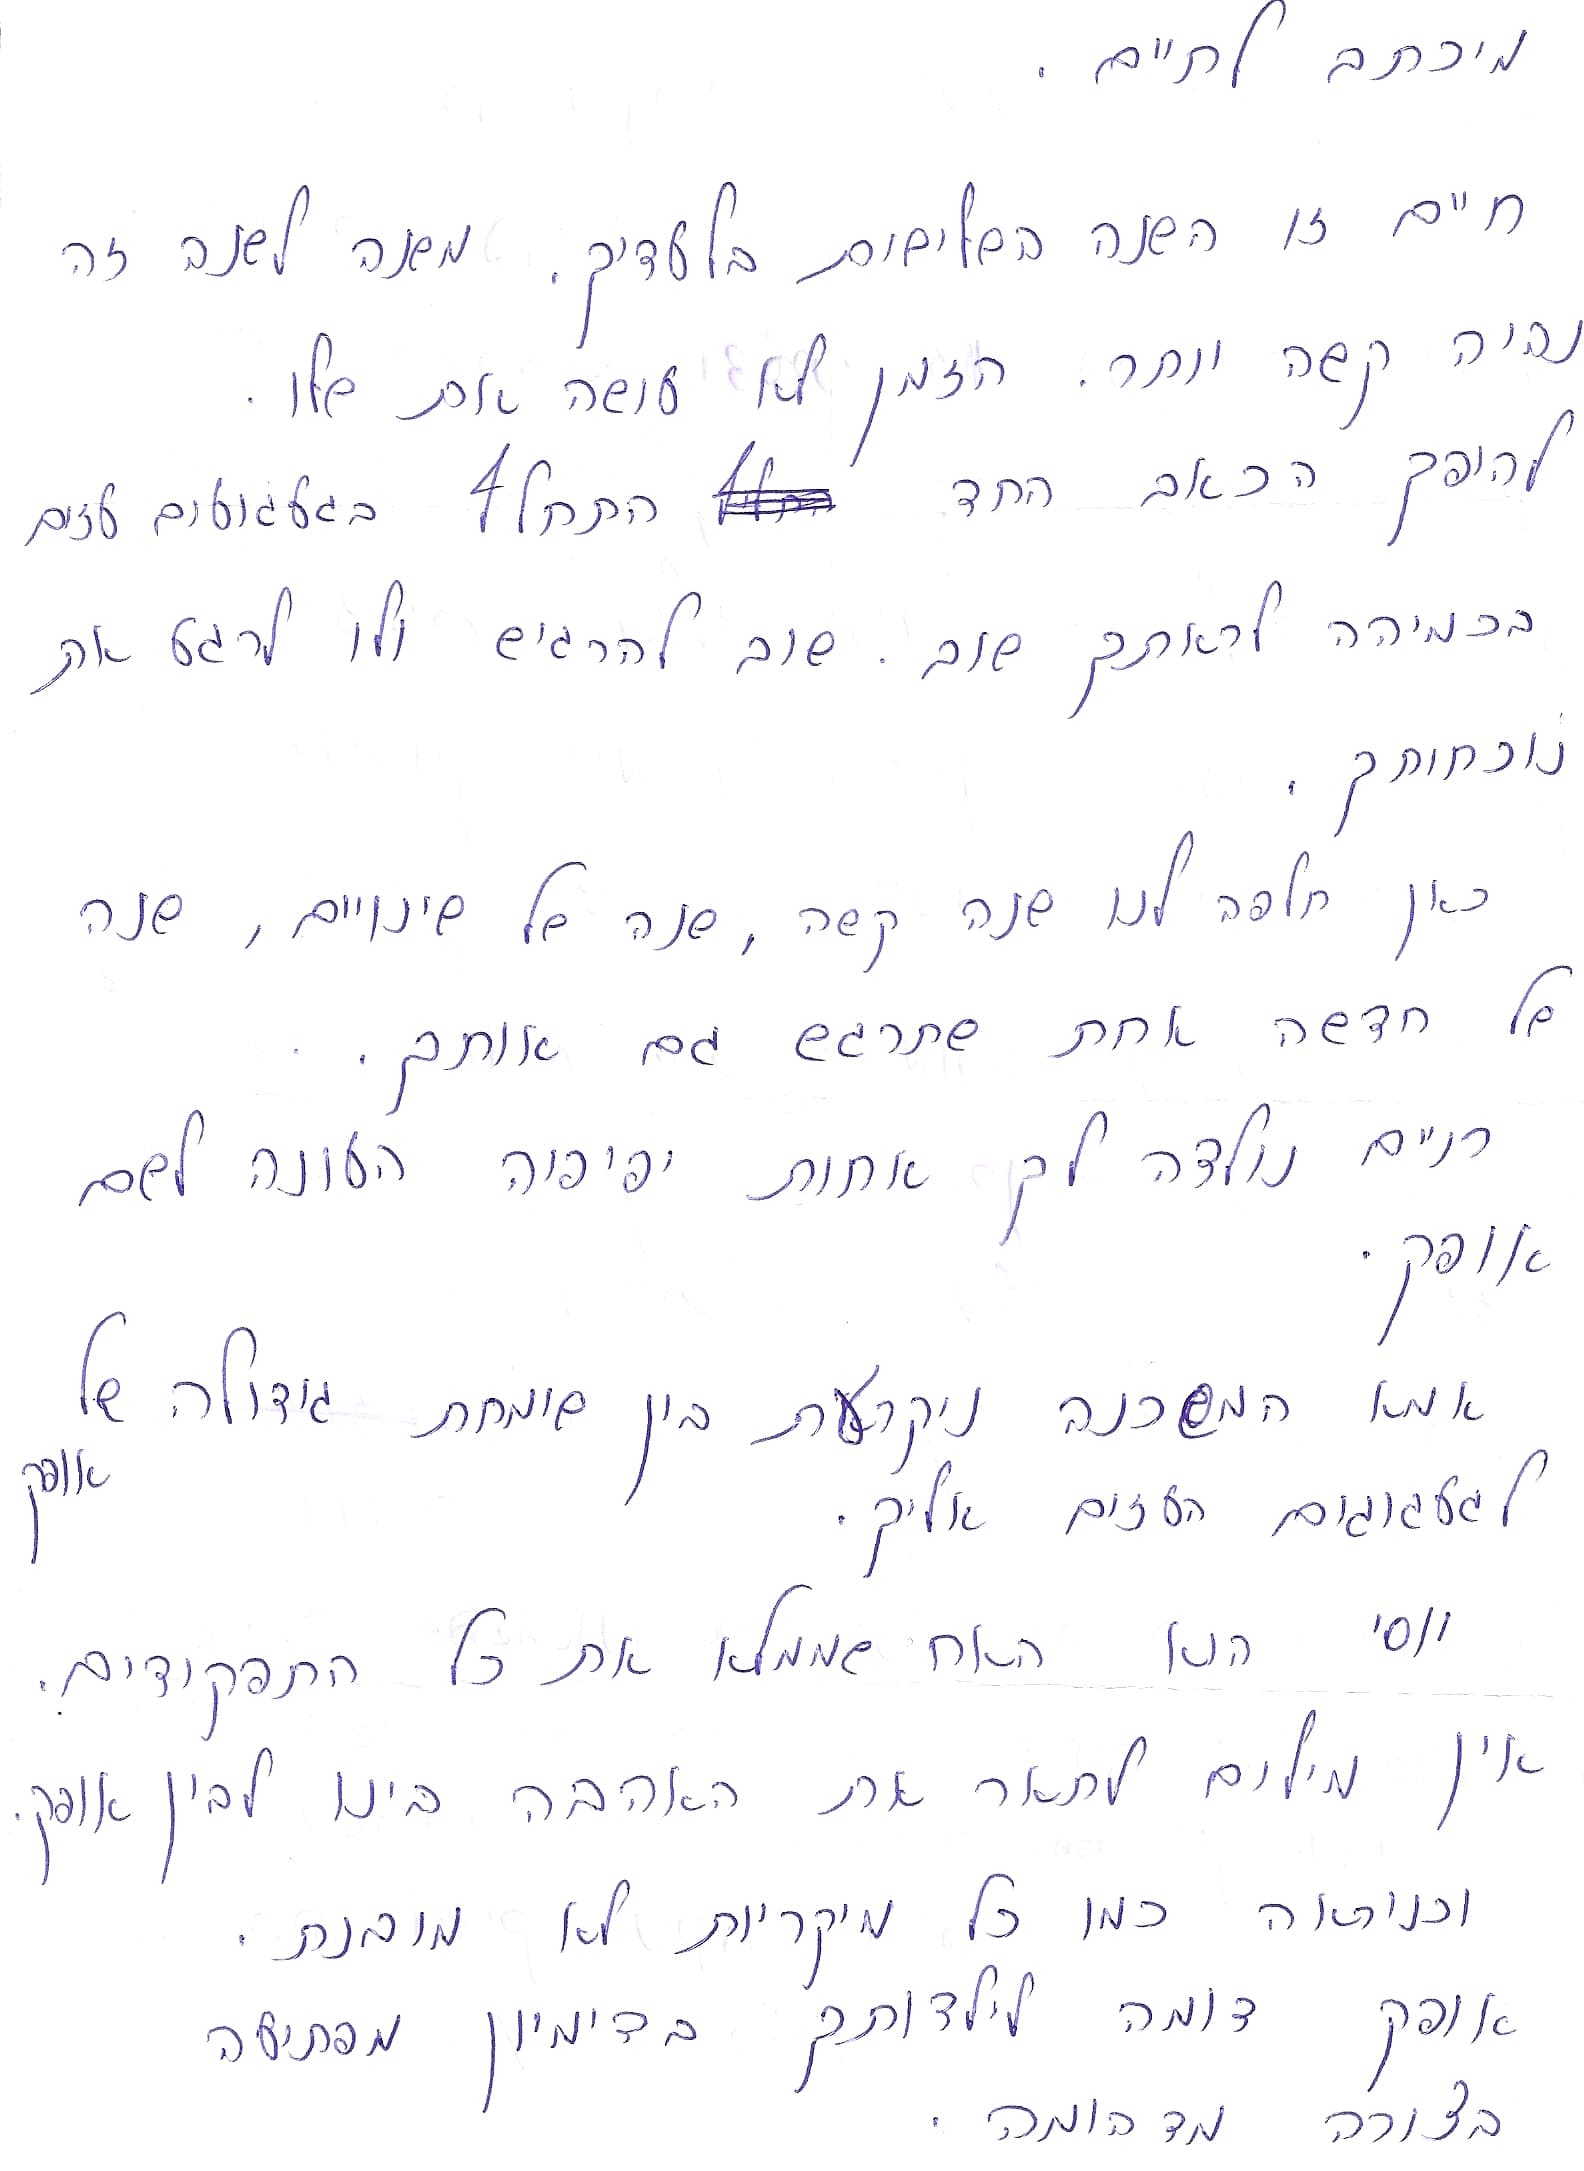 מיכתב לחיים.
חיים זו השנה השלישית בלעדיך. משנה לשנה זה
נהיה קשה יותר. הזמן לא עושה את שלו.
להיפך הכאב החד התחלף בגעגועים עזים
בכמיהה לראותך שוב. שוב להרגיש ולו לרגע את
נוכחותך.
כאן חלפה לנו שנה קשה, שנה של שינויים, שנה
של חדשה אחת שתרגש גם אותך.
חיים נולדה לך אחות יפיפיה העונה לשם
אופק.
אמא המסכנה ניקרעת בין שימחת גידולה של
אופק
לגעגוגים העזים אליך.
יוסי הוא האח שממלא את כל התפקידים.
אין מילים לתאר את האהבה בינו לבין אופק.
וכניראה כמו כל מיקריות לא מובנת.
אופק דומה לילדותך בדימיון מפתיעה
בצורה מדהימה.